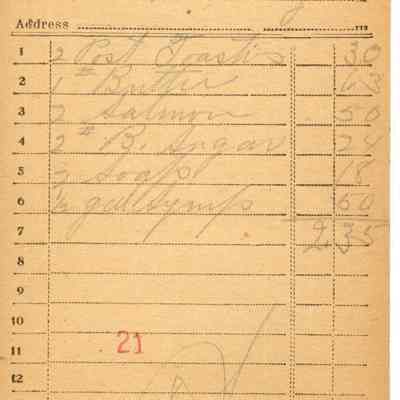 Address
1 2 Post Toasties 30
2 1 # Butter 63
3 2 Salmon 50
4 2 # B. Sugar 24
5 3 Soaps 18
6 ½ gal Syrup 50
7 2 35
8
9
10
11 21
12